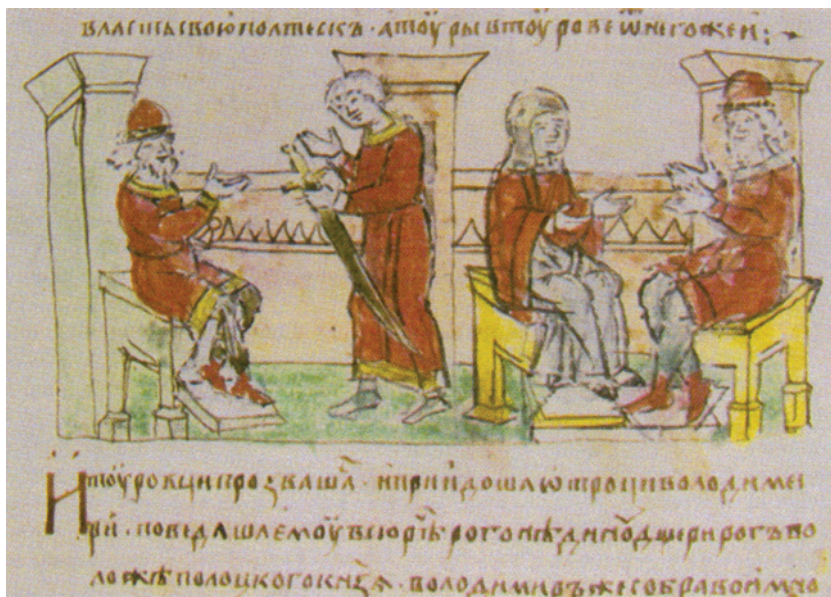 власть свою полтескъ · а тоуры в тоурове ѿ негоже и :
И тоуровци прозвашѧ · и приидоша ѿтроци володиме
ри · поведаша емоу всю рѣ рогонѣдиноу дщери рогъво
ложѣ полоцкого кнѕѧ · володимиръ же собра вои мно